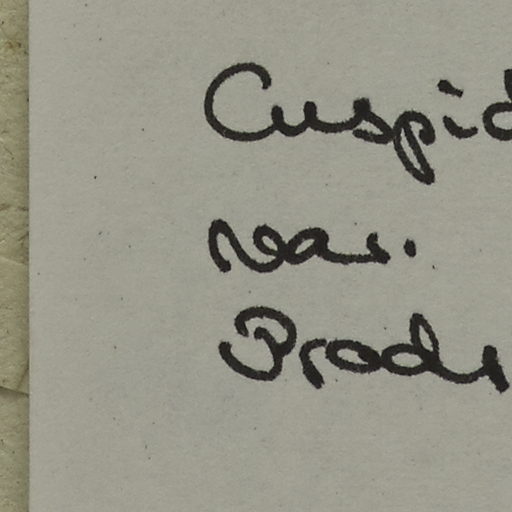 Cuspid
var.
Prodr